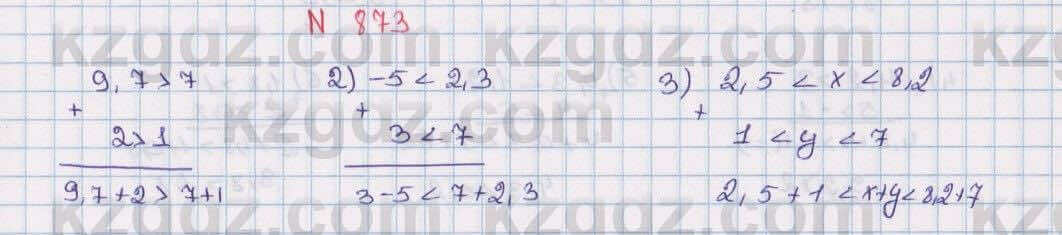 N 873
9,7 > 7
+
2 > 1
9,7 + 2 > 7 + 1
2) -5 < 2,3
+
3 < 7
3 - 5 < 7 + 2,3
3) 2,5 < x < 8,2
+
1 < y < 7
2,5 + 1 < x + y < 8,2 + 7
kzgdz.com
kzgdz.com
kzgdz.com
kzgdz.com